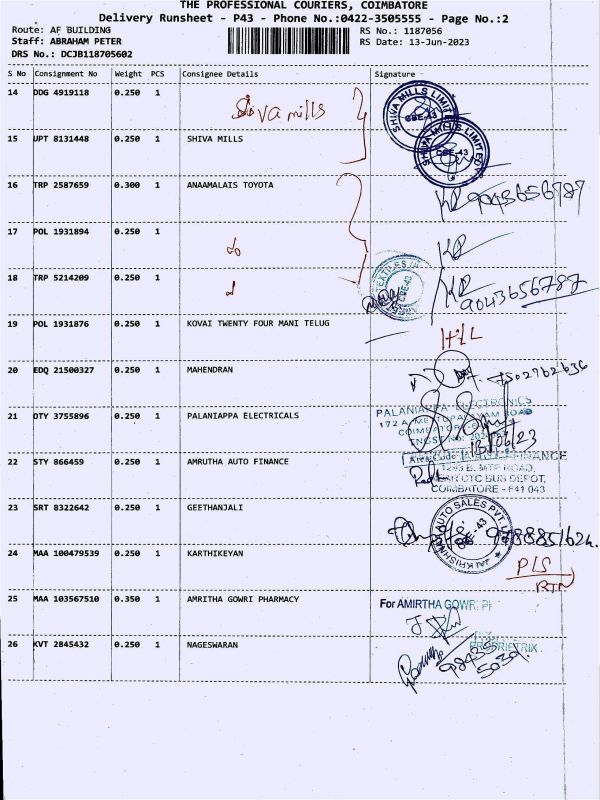 THE PROFESSIONAL COURIERS, COIMBATORE
Delivery Runsheet - P43 - Phone No.:0422-3505555 - Page No.:2
Route: AF BUILDING RS No.: 1187056
Staff: ABRAHAM PETER RS Date: 13-Jun-2023
DRS No.: DCJB118705602
S No Consignment No Weight PCS Consignee Details Signature
14 DDG 4919118 0.250 1 Siva mills
SHIVA MILLS LIMITED
CBE-43
15 UPT 8131448 0.250 1 SHIVA MILLS
SHIVA MILLS LIMITED
CBE-43
16 TRP 2587659 0.300 1 ANAAMALAIS TOYOTA
9043656787
17 POL 1931894 0.250 1 do
18 TRP 5214209 0.250 1
9043656787
19 POL 1931876 0.250 1 KOVAI TWENTY FOUR MANI TELUG
20 EDQ 21500327 0.250 1 MAHENDRAN
21 OTY 3755896 0.250 1 PALANIAPPA ELECTRICALS
PALANIAPPA ELECTRONICS
13/06/23
22 STY 866459 0.250 1 AMRUTHA AUTO FINANCE
FINANCE
COIMBATORE - 641 043
23 SRT 8322642 0.250 1 GEETHANJALI
JAI KRISHNA AUTO SALES PVT. L
CBE-43
24 MAA 100479539 0.250 1 KARTHIKEYAN
25 MAA 103567510 0.350 1 AMRITHA GOWRI PHARMACY
For AMIRTHA GOWRI
26 KVT 2845432 0.250 1 NAGESWARAN
PROPRIETRIX